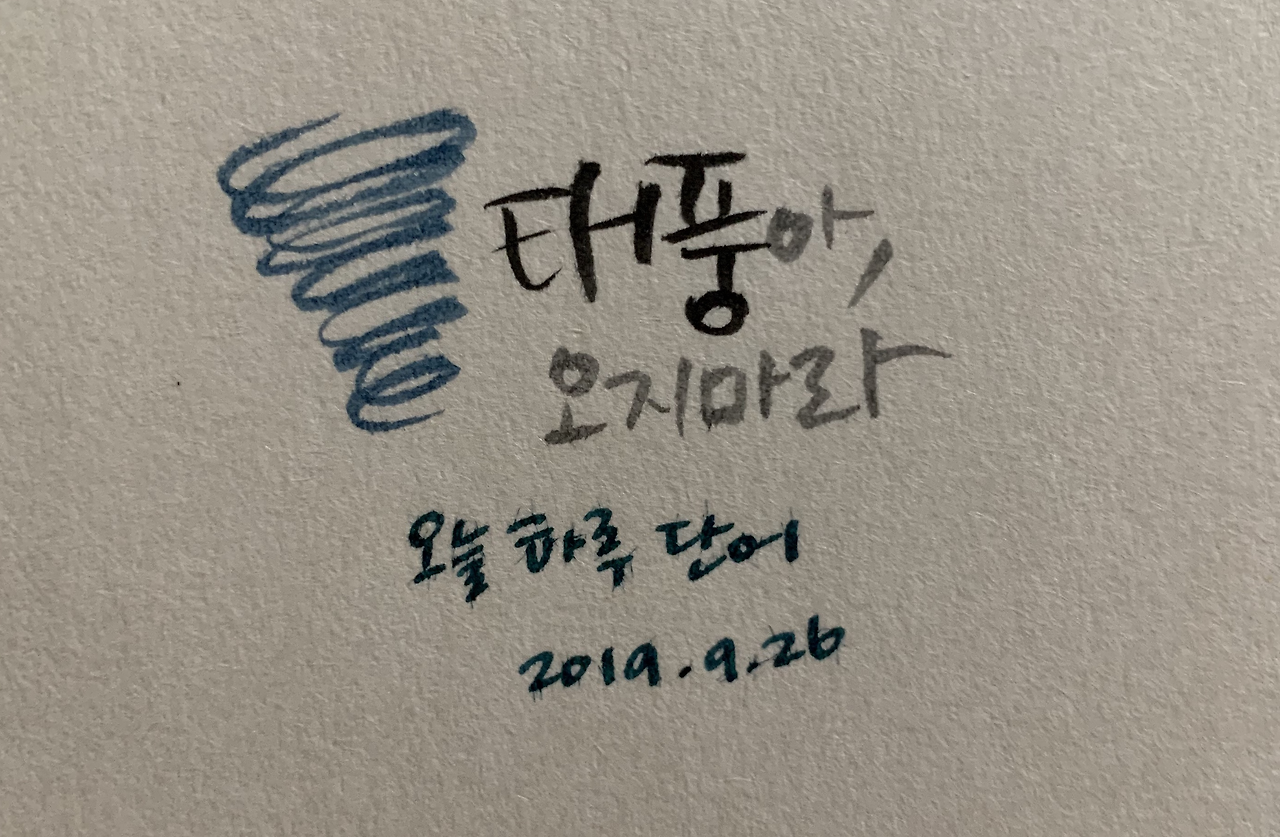 태풍아,
오지마라
오늘 하루 단어
2019.9.26